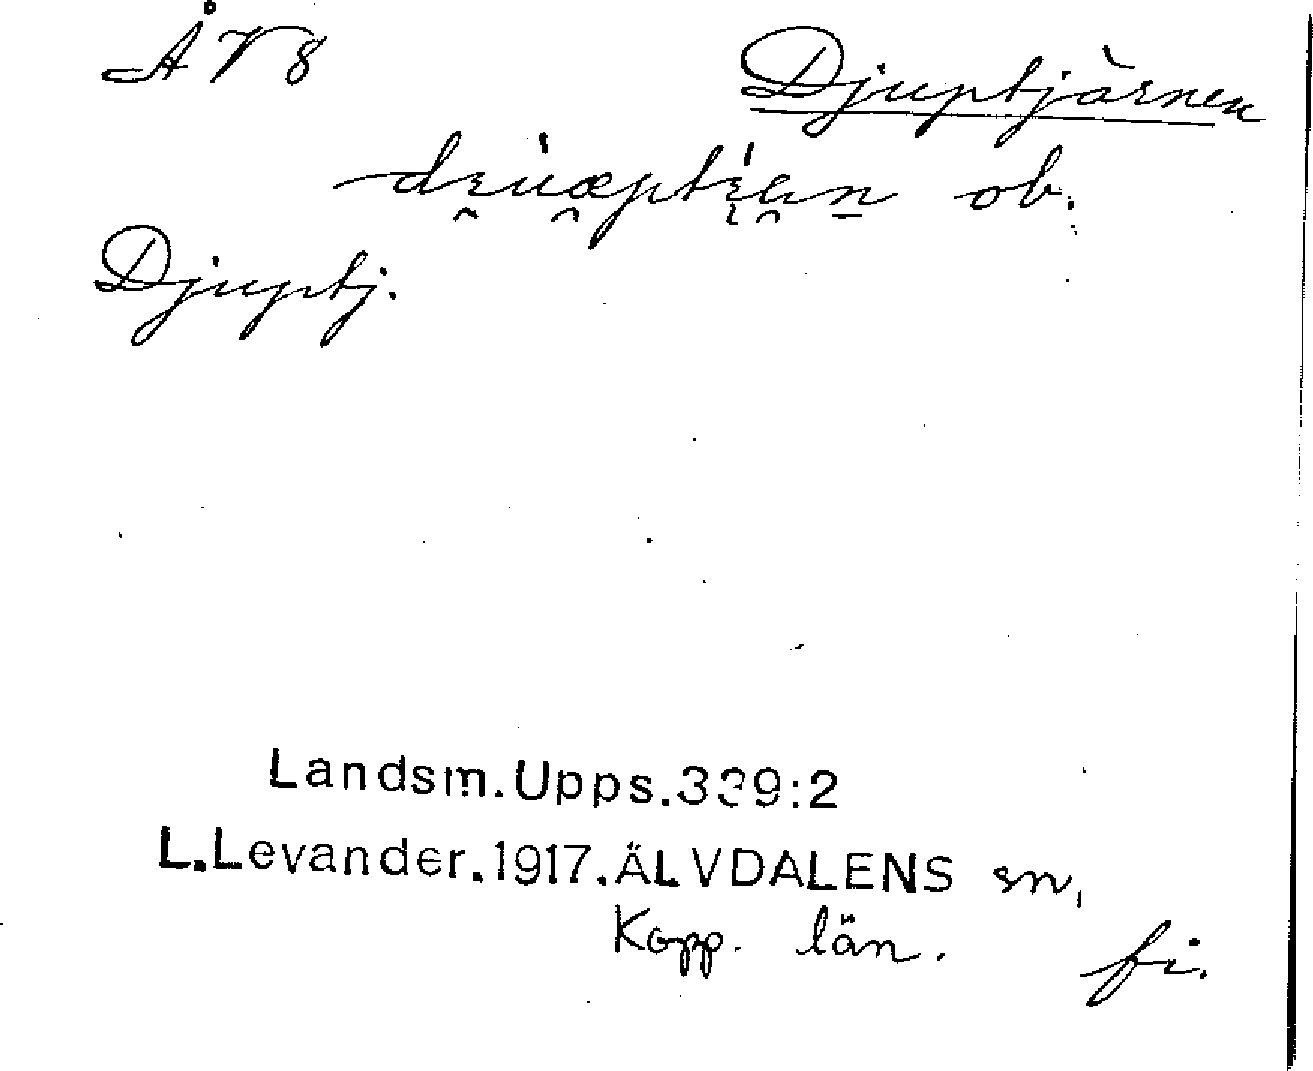 Å V 8
Djuptjärnen
ob.
Djuptj.
Landsm.Upps.339:2
L.Levander.1917.ÄLVDALENS sn,
Kopp. län.
fi.